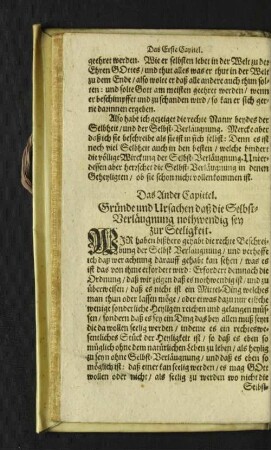 Das Erste Capitel.
geehret werden. Wie er selbsten lebet in der Welt zu des
Ehren GOttes / und thut alles was er thut in der Welt
zu dem Ende / also wolte er daß alle andere auch thun sol-
ten: und solte Gott am meisten geehret werden / wenn
er beschimpffet und zu schanden wird / so kan er sich ger-
ne darinnen ergeben.
Also habt ich gezeiget die rechte Natur beydes der
Selbheit / und der Selbst-Verläugnung. Mercke aber
daß ich sie beschreibe als sie ist in sich selbst: Denn es ist
noch viel Selbheit auch in den besten / welche hindert
die völlige Wirckung der Selbst-Verläugnung. Unter-
dessen aber herrschet die Selbst-Verläugnung in denen
Geheyligten / ob sie schon nicht vollenkommen ist.
Das Ander Capietel.
Gründe und Ursachen daß die Selbst-
Verlängnung nothwendig sey
zur Seeligkeit.
WIR haben bißhero gehabt die rechte Beschrei-
bung der Selbst Verlaugnung / und verhoffe
ich daß wer achtung darauff gehabt kan sehen / was es
ist das von ihme erfordert wird: Erfordert demnach die
Ordnung / daß wir zeigen daß es nothwendig ist / und zu
überweisen / daß es nicht ist ein Mittel-Ding welches
man thun oder lassen möge / oder etwas dazu nur etliche
wenige sonderliche Heyligen reichen und gelangen müs-
sen / sondern daß es sey ein Ding das bey allen muß seyn
die da wollen seelig werden / indeme es ein rechtswe-
sentliches Stück der Heyligkeit ist / so daß es eben so
müglich ohne dem natürlichen Leben zu leben / als heylig
zu seyn ohne Selbst-Verläugnung / und daß es eben so
möglich ist: daß einer kan seelig werden / es mag GOtt
wollen oder nicht / als seelig zu werden wo nicht die
Selbst-